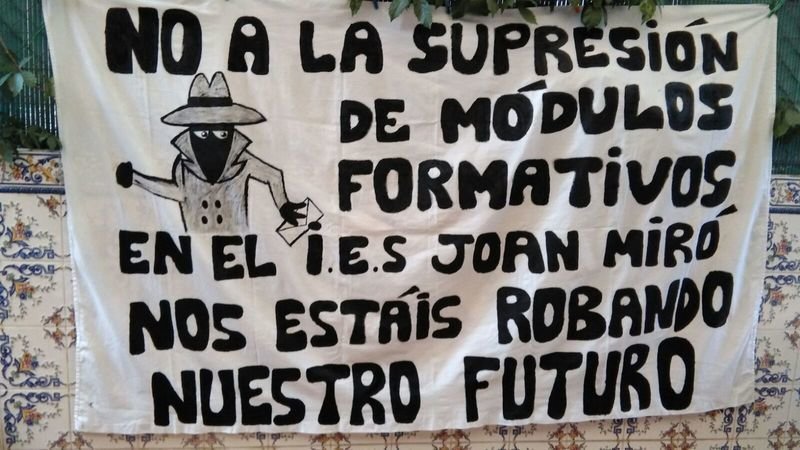 NO A LA SUPRESIÓN
DE MÓDULOS
FORMATIVOS
EN EL I.E.S JOAN MIRÓ
NOS ESTÁIS ROBANDO
NUESTRO FUTURO